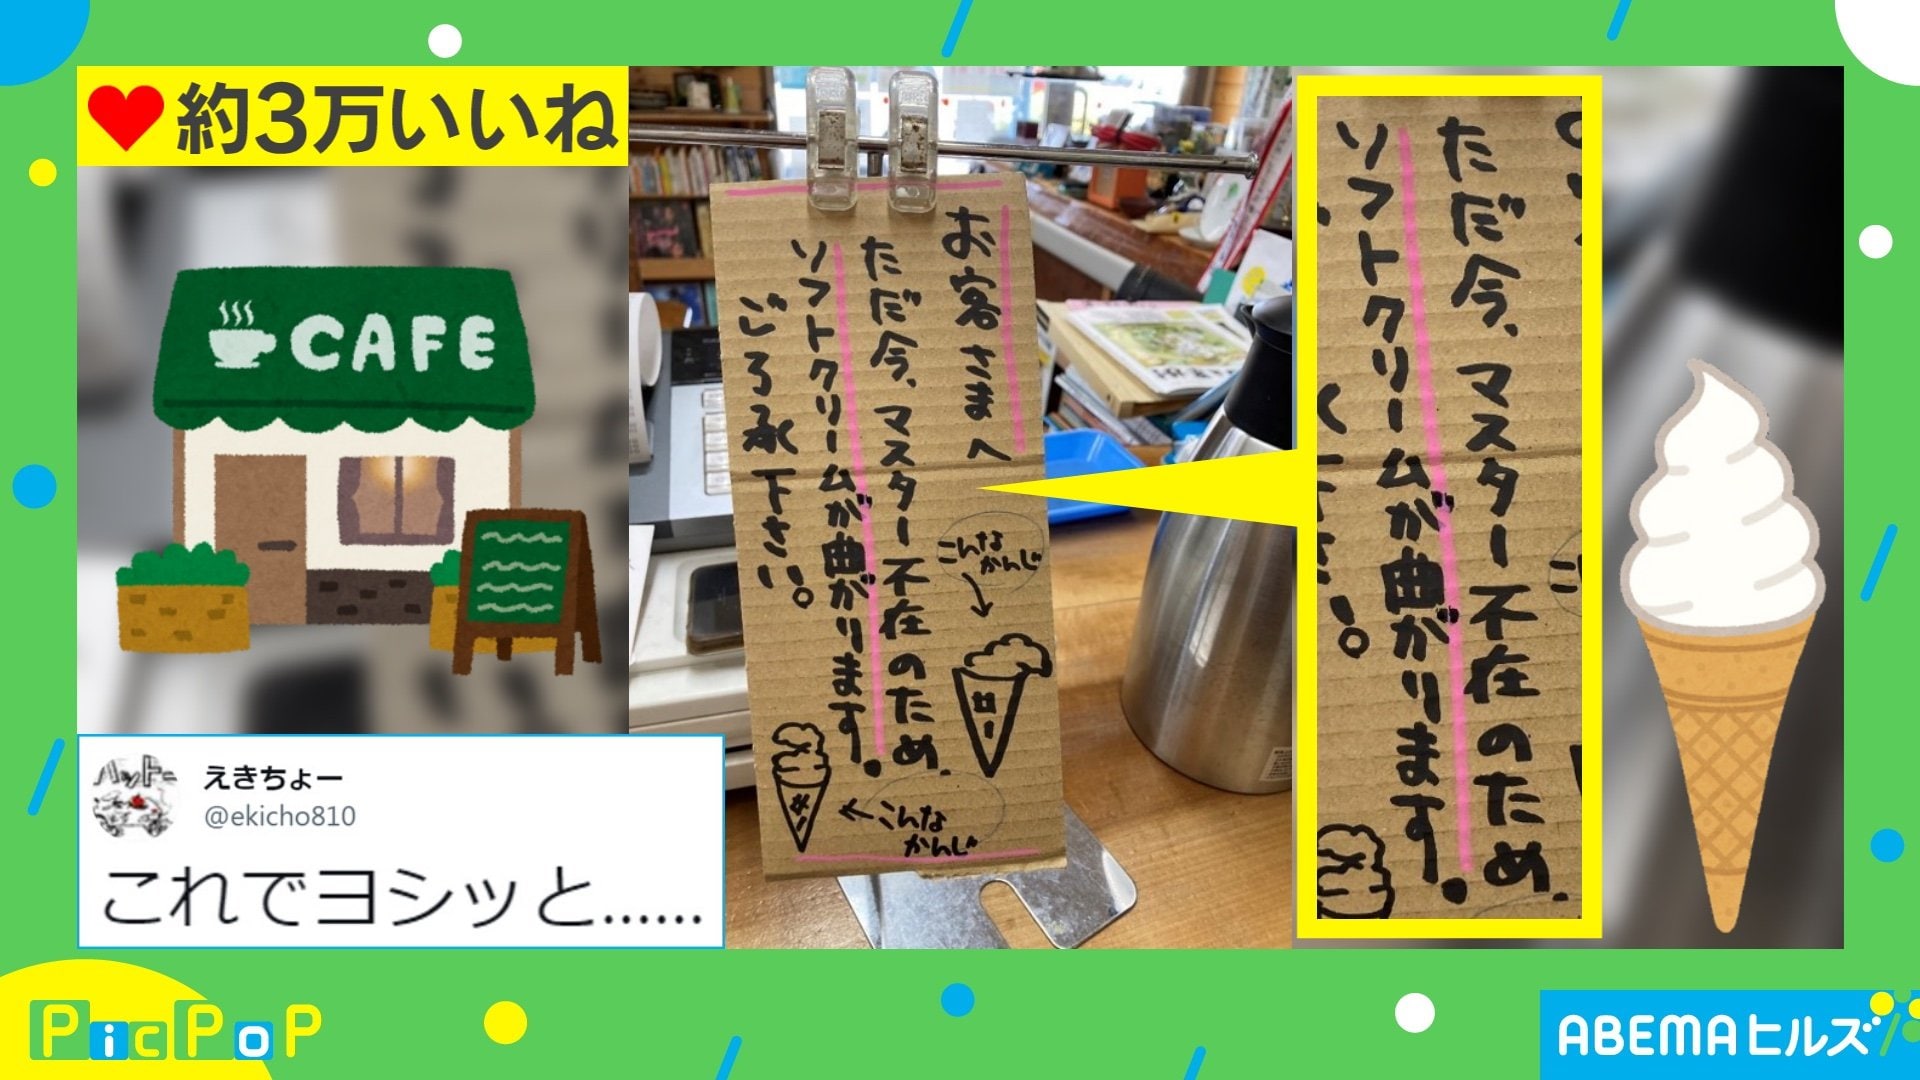 約3万いいね
CAFE
えきちょー
@ekicho810
これでヨシッと……
お客さまへ
ただ今、マスター不在のため、
ソフトクリームが曲がります。
ご了承下さい。
こんな
かんじ
こんな
かんじ
ただ今、マスター不在のため、
ソフトクリームが曲がります。
PicPoP
ABEMAヒルズ